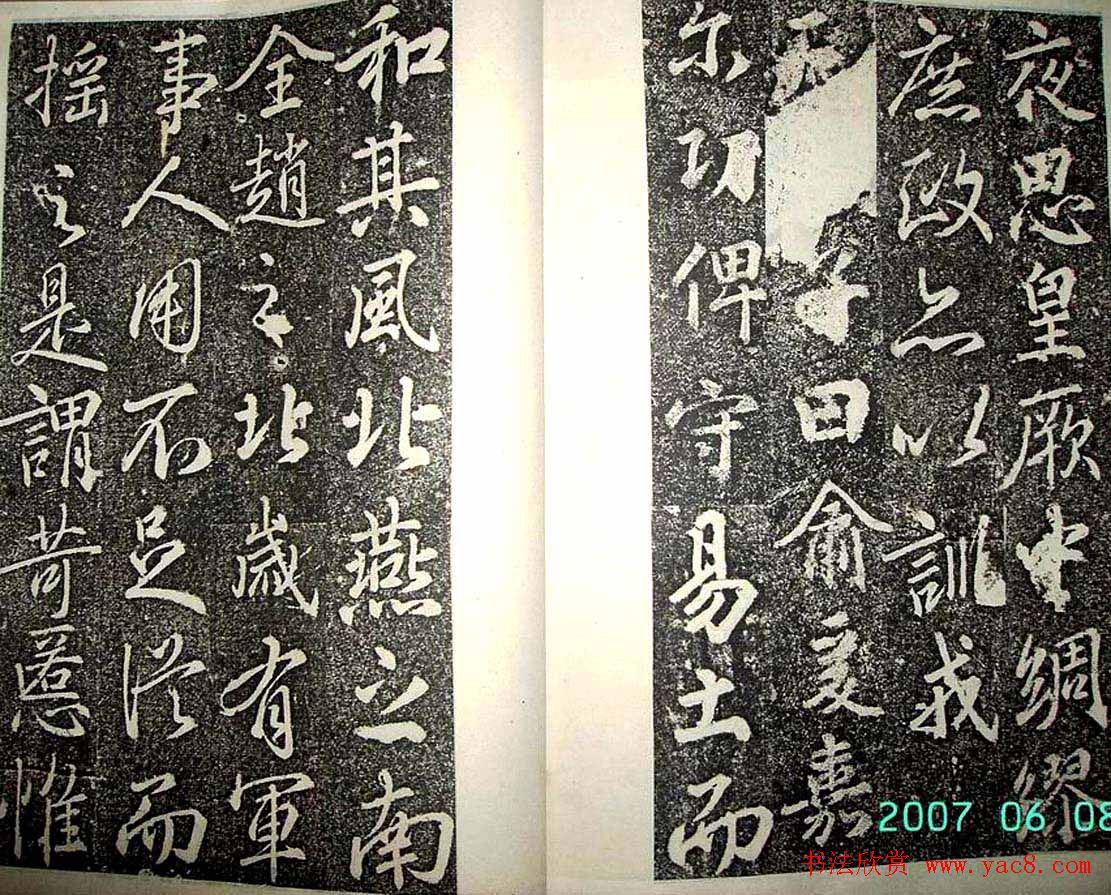 夜思皇厥中綢繆
庶政亦以訓戎
天子曰俞爰嘉
尔功俾守易土而
和其風北燕之南
全趙之北歲有軍
事人用不足從而
搖之是謂苛慝惟
2007 06 08
书法欣赏 www.yac8.com